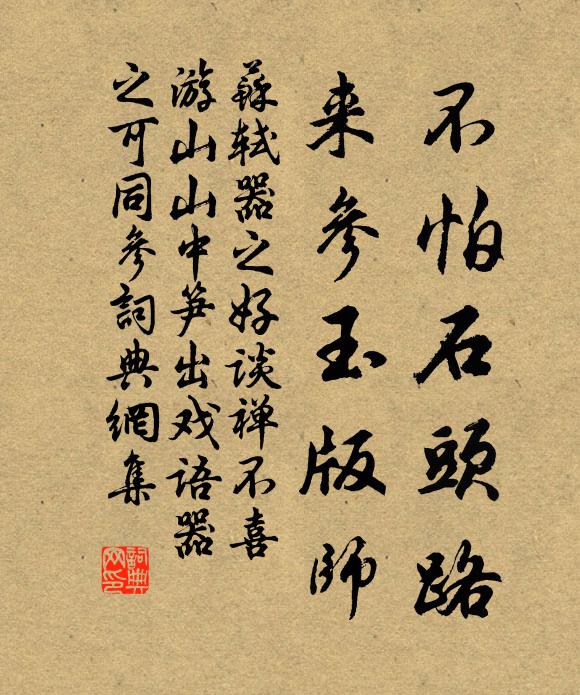 不怕石頭路
来參玉版師
蘇軾器之好谈禅不喜
游山山中笋出戏语器
之可同參詞典網集
詞典網印